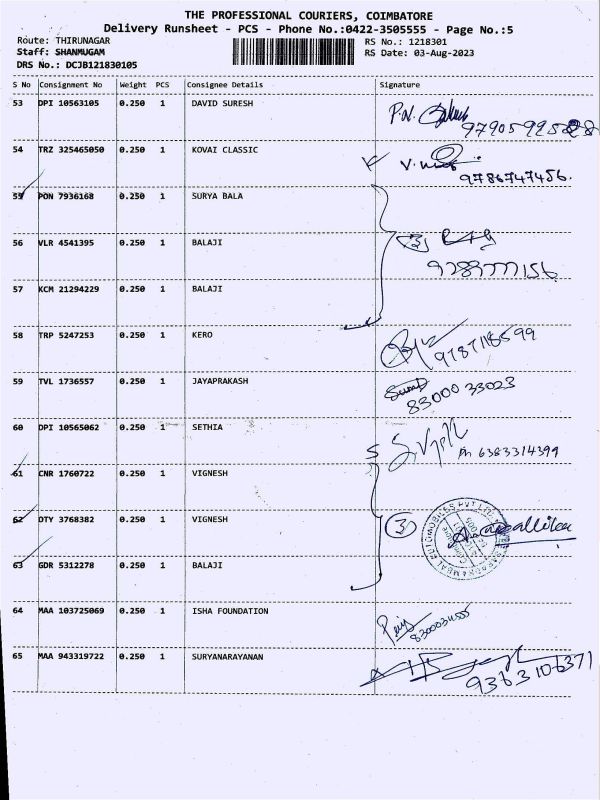 THE PROFESSIONAL COURIERS, COIMBATORE
Delivery Runsheet - PCS - Phone No.:0422-3505555 - Page No.:5
Route: THIRUNAGAR RS No.: 1218301
Staff: SHANMUGAM RS Date: 03-Aug-2023
DRS No.: DCJB121830105
S No Consignment No Weight PCS Consignee Details Signature
53 DPI 10563105 0.250 1 DAVID SURESH P.N.
54 TRZ 325465050 0.250 1 KOVAI CLASSIC
9786747456.
55 PON 7936168 0.250 1 SURYA BALA
56 VLR 4541395 0.250 1 BALAJI (3)
57 KCM 21294229 0.250 1 BALAJI
58 TRP 5247253 0.250 1 KERO
9787118599
59 TVL 1736557 0.250 1 JAYAPRAKASH
83000 33023
60 DPI 10565062 0.250 1 SETHIA
Ph 6383314399
61 CNR 1760722 0.250 1 VIGNESH
62 OTY 3768382 0.250 1 VIGNESH (3)
63 GDR 5312278 0.250 1 BALAJI
64 MAA 103725069 0.250 1 ISHA FOUNDATION
65 MAA 943319722 0.250 1 SURYANARAYANAN
9363106371